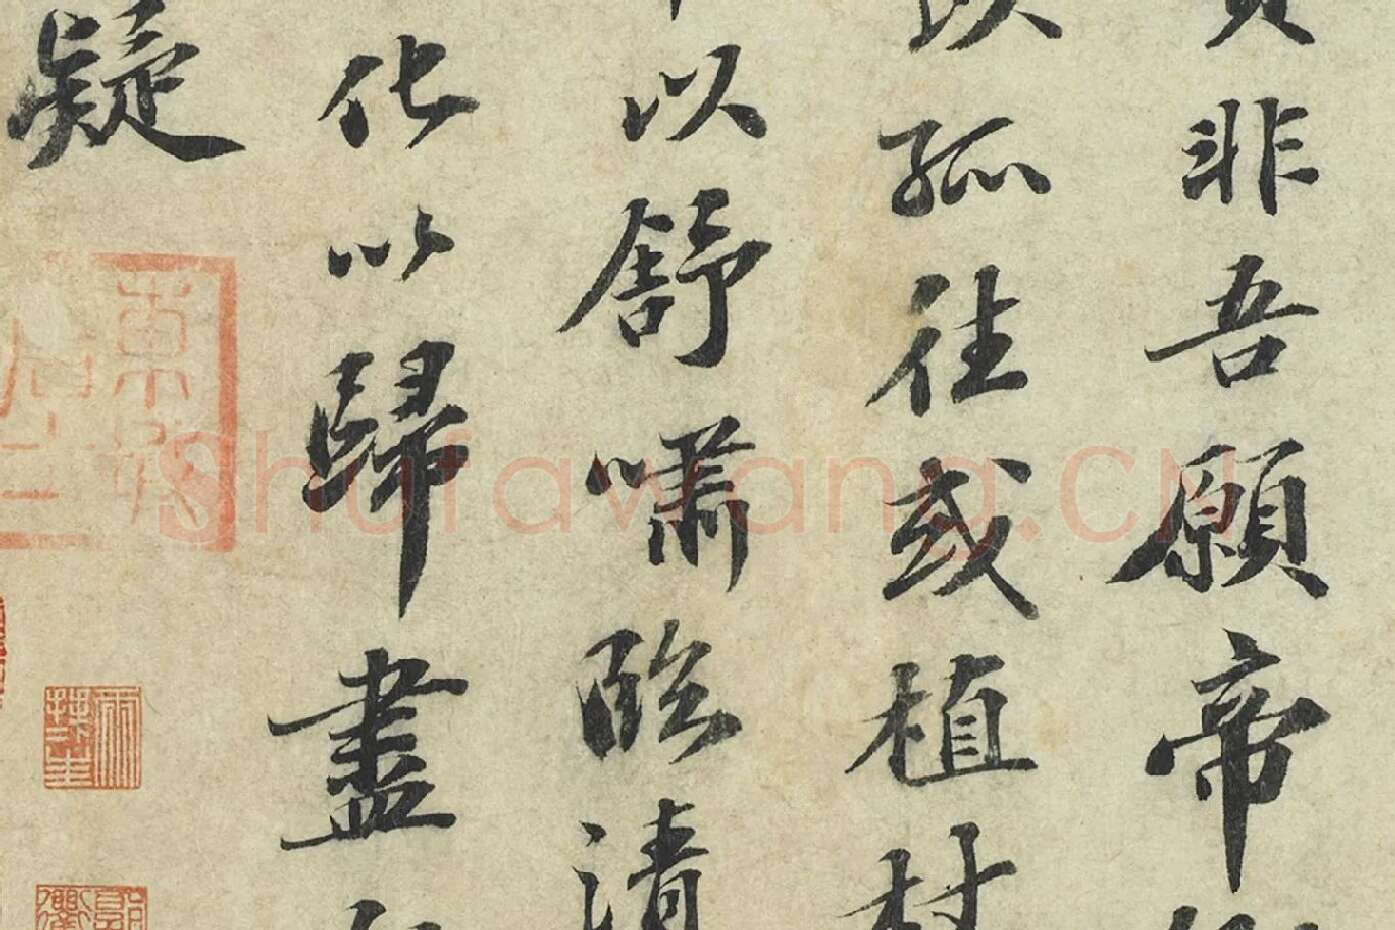 貴非吾願帝
以孤往或植杖
以舒嘯臨清
化以歸盡
疑
東坡居士
Shufawang.CN